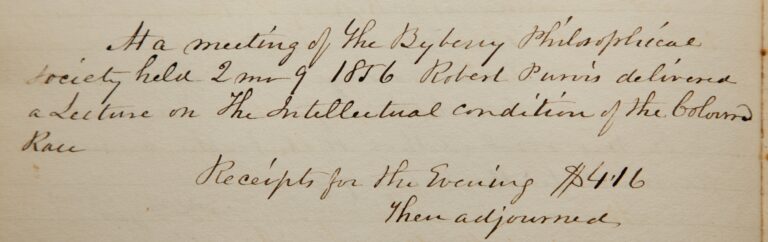 At a meeting of the Byberry Philosophical
Society held 2 mo 9 1856 Robert Purvis delivered
a Lecture on the Intellectual condition of the Coloured
Race
Receipts for the Evening $4.16
Then adjourned